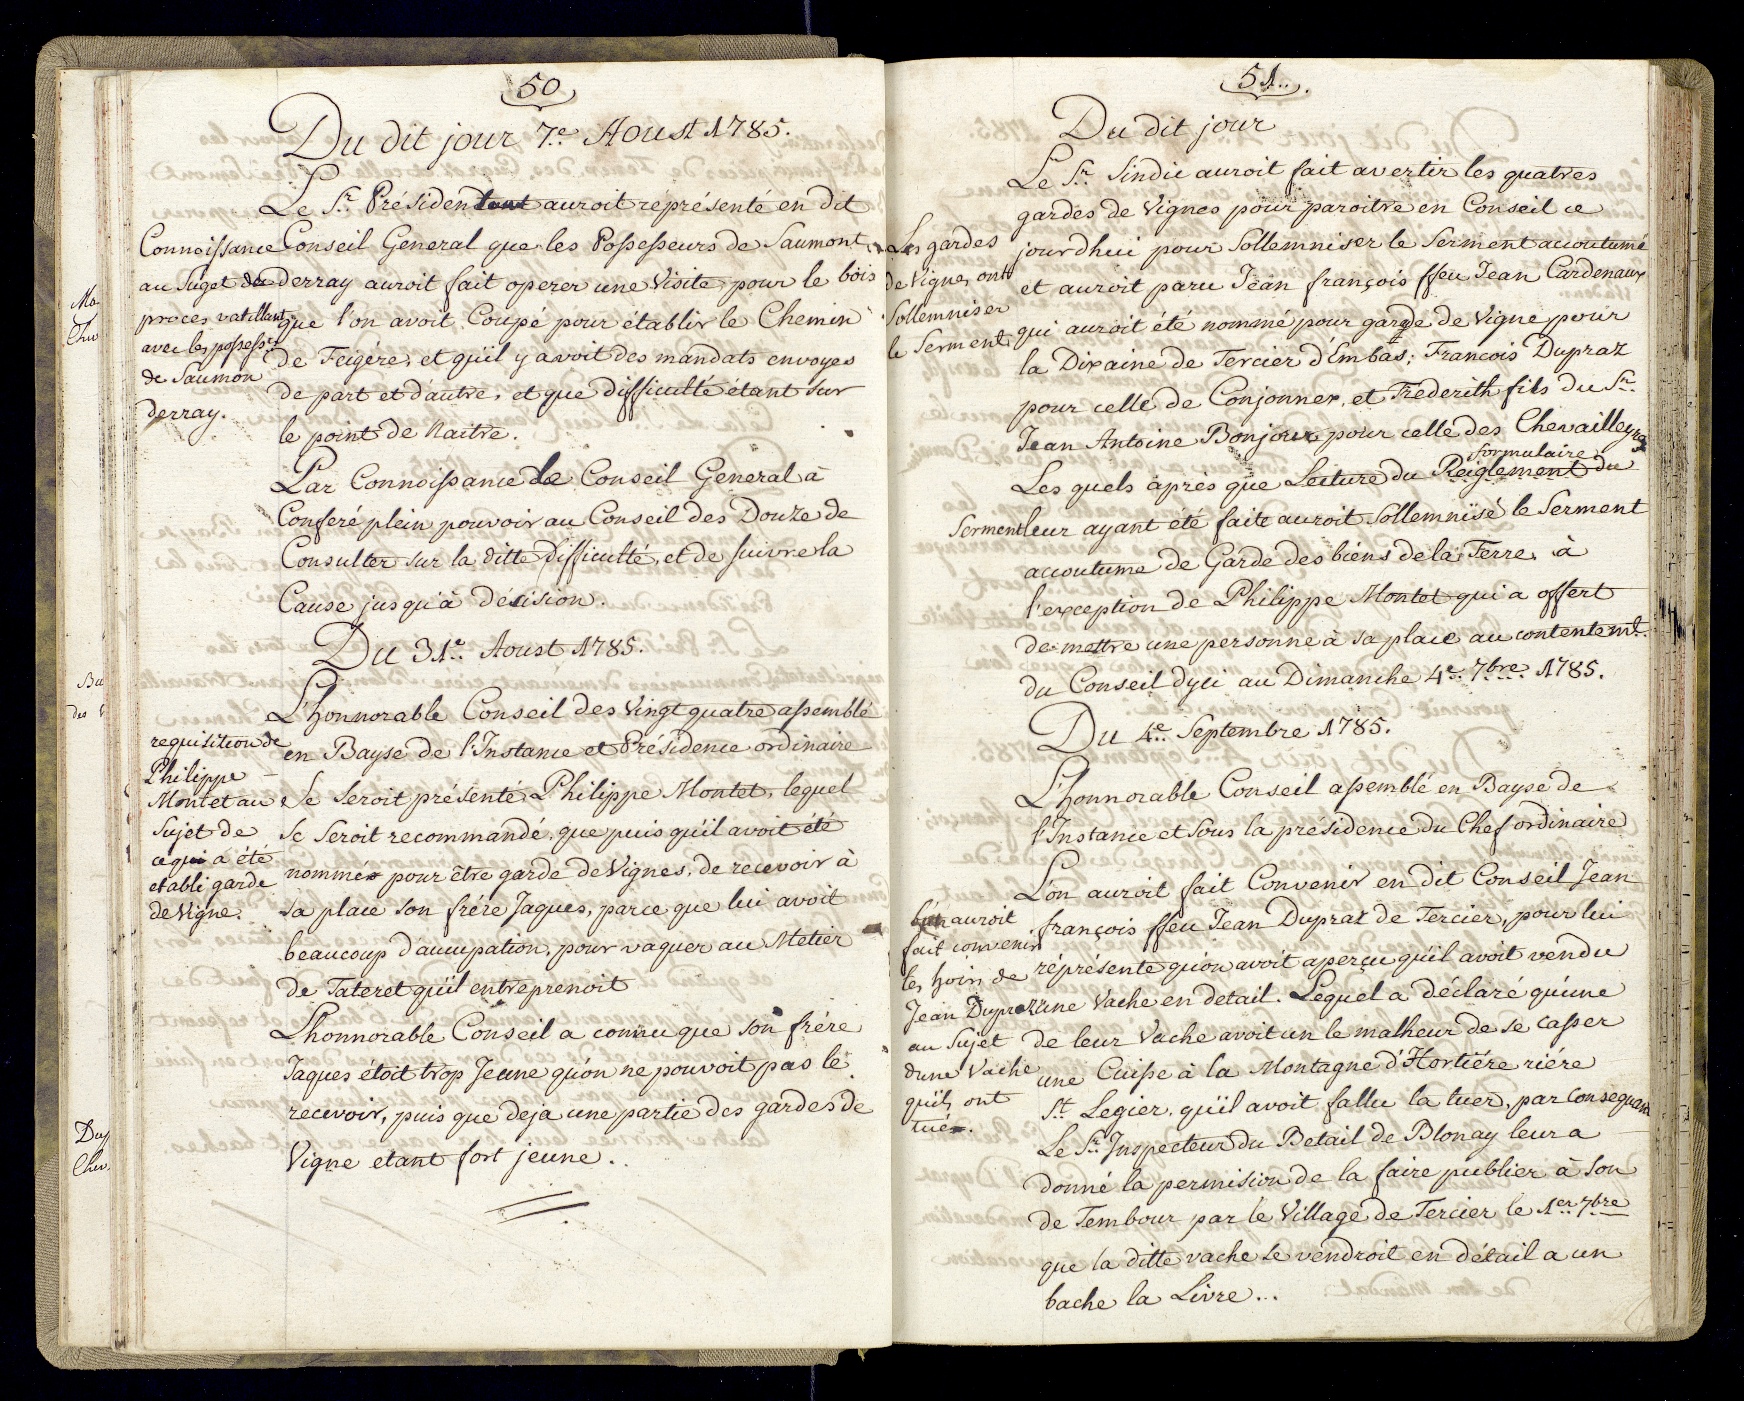 50
Du dit jour 7.e Aoust 1785.
Le Sr. Président auroit répresenté en dit
Conseil General que les Possesseurs de Saumont
derray auroit fait operer une Visite pour le bois
que l'on avoit Coupé pour établir le Chemin
de Feigére, et qu'il y avoit des mandats envoyes
de part et d'autre, et que difficulté étant sur
le point de Naitre.
Connoissance
au Suget du
proces vatillant
avec les possess.rs
de Saumon
derray.
Par Connoissance le Conseil General à
Conferé plein pouvoir au Conseil des Douze de
Consulter sur la ditte difficulté, et de suivre la
Cause jusqu'à décision.
Du 31.e Aoust 1785.
L'honnorable Conseil des Vingt quatre assemblé
en Bayse de l'Instance et Présidence ordinaire
Se Seroit présenté, Philippe Montet, lequel
Se Seroit recommandé, que puis qu'il avoit été
nommé pour être garde de Vignes, de recevoir à
sa place son frére Jaques, parce que lui avoit
beaucoup d'accupation, pour vaquer au Metier
de Tateret qu'il entreprenoit
requisition de
Philippe
Montet au
Sujet de
ce qui a été
etabli garde
de Vigne.
L'honnorable Conseil a connu que son frére
Jaques étoit trop Jeune qu'on ne pouvoit pas le
recevoir, puis que deja une partie des gardes de
Vigne etant fort jeune.
51..
Du dit jour
Le Sr. Sindic auroit fait avertir les quatres
gardes de Vignes pour paroitre en Conseil ce
jourdhui pour Sollemniser le Serment accoutumé
et auroit paru Jean françois ffeu Jean Cardenaux
qui auroit été nommé pour garde de Vigne pour
la Dixaine de Tercier d'Embas; Francois Dupraz
pour celle de Conjonnex, et Frederith fils du Sr.
Jean Antoine Bonjour pour celle des Chevailleyres
formulaire
Les quels après que Lecture du Reiglement du
Serment leur ayant été faite auroit Sollemnïsé le Serment
accoutume de Garde des biens de la Terre, à
l'exception de Philippe Montet qui a offert
de mettre une personne à sa place au contentemt.
du Conseil dyci au Dimanche 4.e 7bre. 1785.
Les gardes
de Vigne, ont
Sollemniser
le Serment
Du 4.e Septembre 1785.
L'honnorable Conseil assemblé en Bayse de
l'Instance et Sous la présidence du Chef ordinaire
L'on auroit fait Convenir en dit Conseil Jean
françois ffeu Jean Dupraz de Tercier, pour lui
réprésente qu'on avoit aperçu qu'il avoit vendu
une Vache en detail. Lequel a déclaré qu'une
de leur Vache avoit un le malheur de se casser
une Cuisse à la Montagne d'Hortiére riére
St. Legier, qu'il avoit fallu la tuer, par Consequant
Le Sr. Inspecteur du Betail de Blonay leur a
donné la permision de la faire publier à Son
de Tembour par le Village de Tercier le 1er. 7bre
que la ditte vache se vendroit en détail a un
bache la Livre...
auroit
fait convenir
les hoirs de
Jean Dupraz
au Sujet
dune Vache
qu'ils ont
tué.